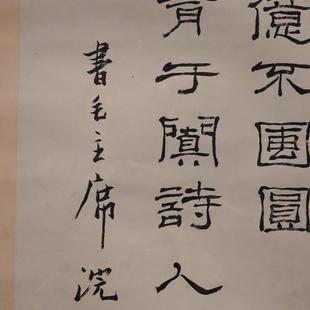 億不團圓
有于闐詩人
書毛主席浣